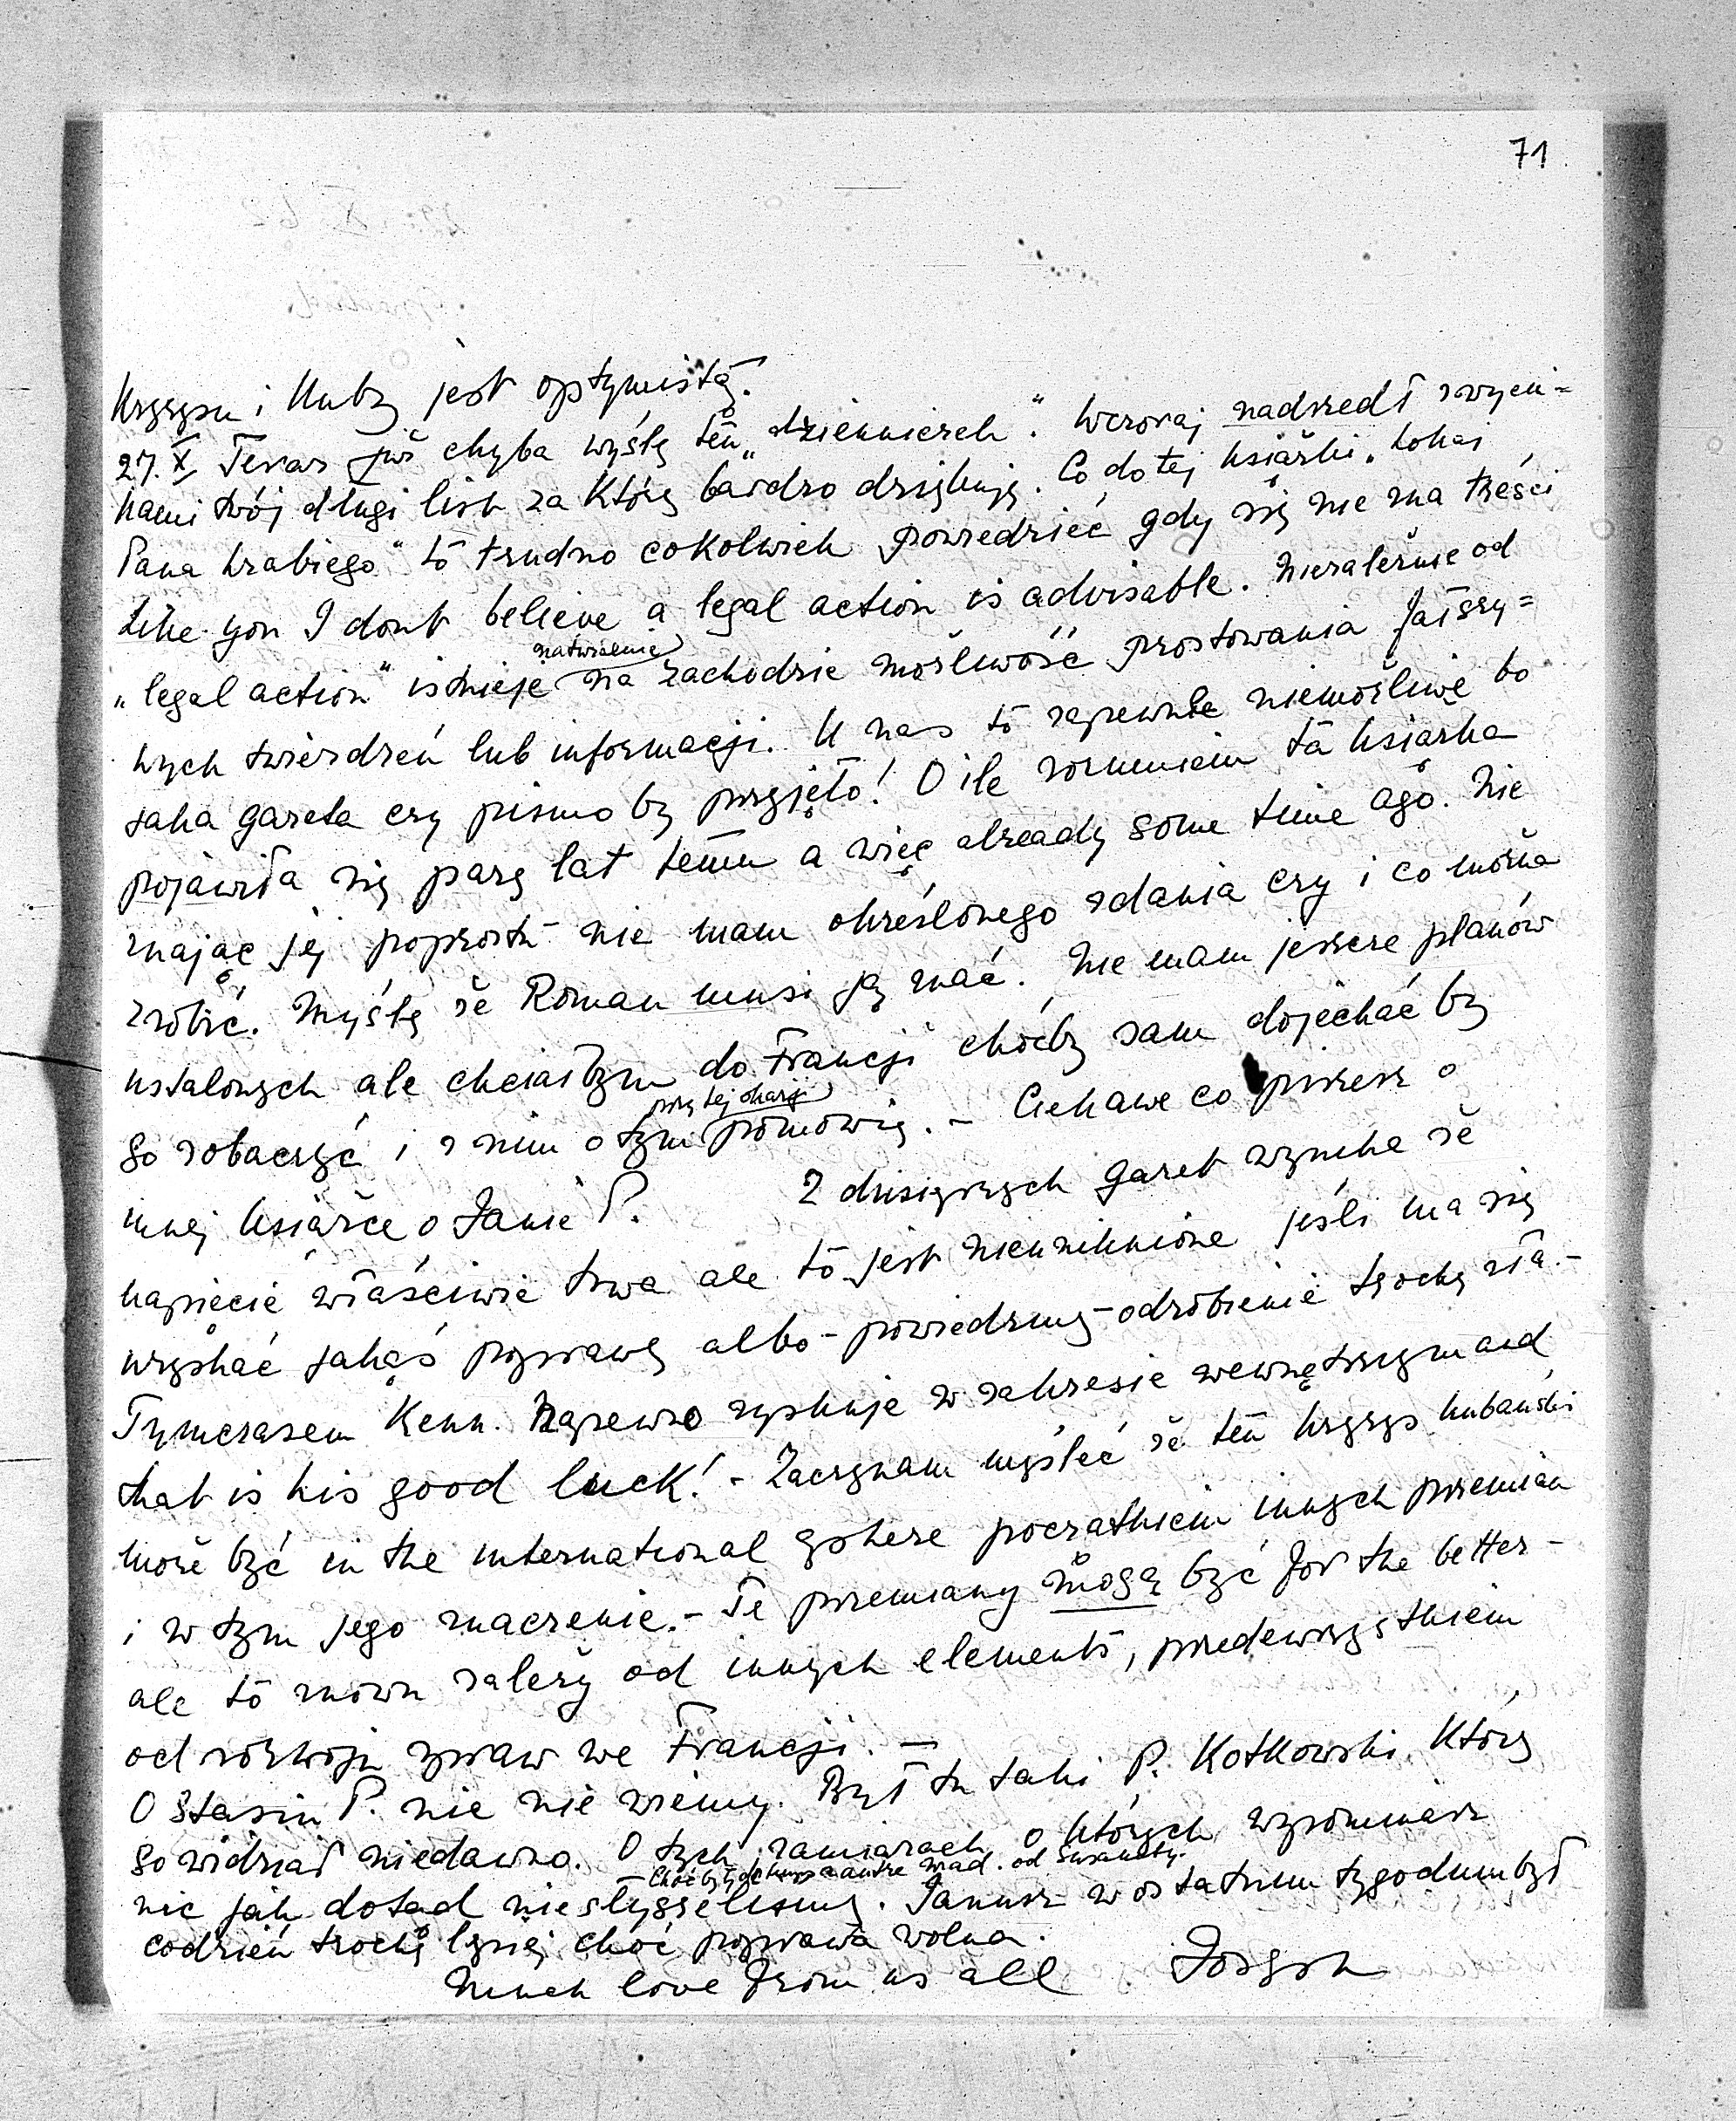 71
kryzysu i Kuby jest optymistą.
27. X Teraz już chyba wyślę ten „dzienniczek". Wczoraj nadszedł z wycin=
kami twój długi list za który bardzo dziękuję. Co do tej książki „Lokaj
Pana hrabiego" to trudno cokolwiek powiedzieć gdy się nie zna treści
Like you I dont believe a legal action is advisable. Niezależnie od
„legal action" istnieje naturalnie na zachodzie możliwość prostowania fałszy=
wych twierdzeń lub informacji. U nas to zapewne niemożliwe bo
jaka gazeta czy pismo by przyjęło! O ile rozumiem ta książka
pojawiła się parę lat temu a więc already some time ago. Nie
znając jej poprostu nie mam określonego zdania czy i co można
zrobić. Myślę że Roman musi ją znać. Nie mam jeszcze planów
ustalonych ale chciałbym do Francji choćby sam dojechać by
go zobaczyć i z nim o tym przy tej okazji pomówię. – Ciekawe co piszesz o
innej książce o Janie P. Z dzisiejszych gazet wynika że
napięcie właściwie trwa ale to jest nieuniknione jeśli ma się
uzyskać jakąś poprawę albo – powiedzmy – odrobienie trochę zła. –
Tymczasem Kenn. napewno zyskuje w zakresie wewnętrznym and
that is his good luck! – Zaczynam myśleć że ten kryzys kubański
może być in the international sphere początkiem innych przemian
i w tym jego znaczenie. – Te przemiany mogą być for the better –
ale to znowu zależy od innych elements, przedewszystkiem
od rozwoju spraw we Francji. –
O Stasiu P. nic nie wiemy. Był tu taki P. Kotkowski który
go widział niedawno. O tych zamiarach o których wspominasz
nic jak dotąd nie słyszeliśmy. Janusz w ostatnim tygodniu był
codzień trochę lepiej choć poprawa wolna.
Much love from us all